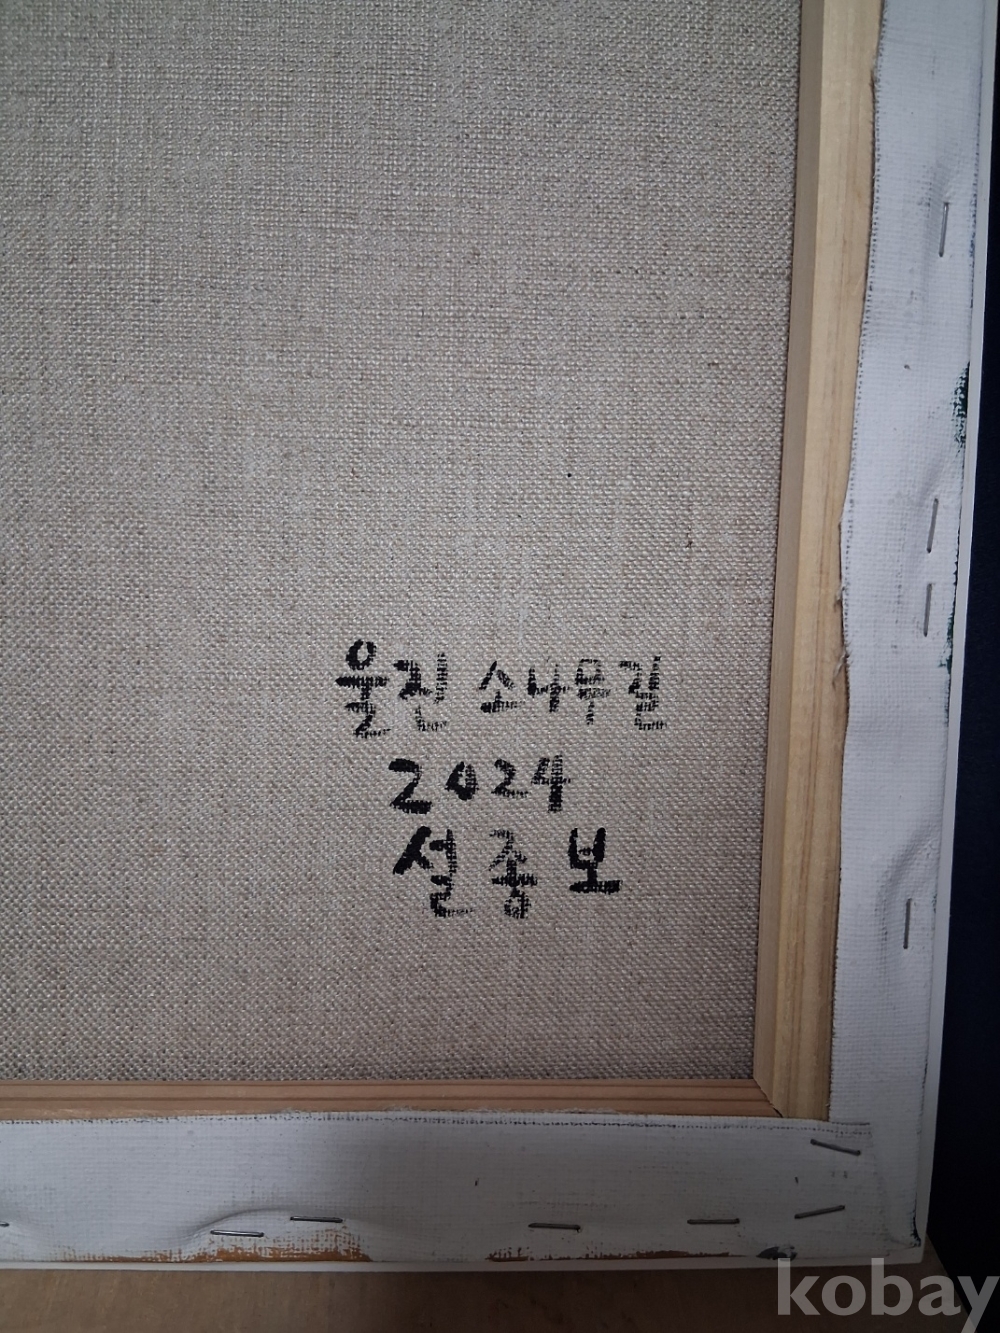 울진 소나무길
2024
설종보
kobay